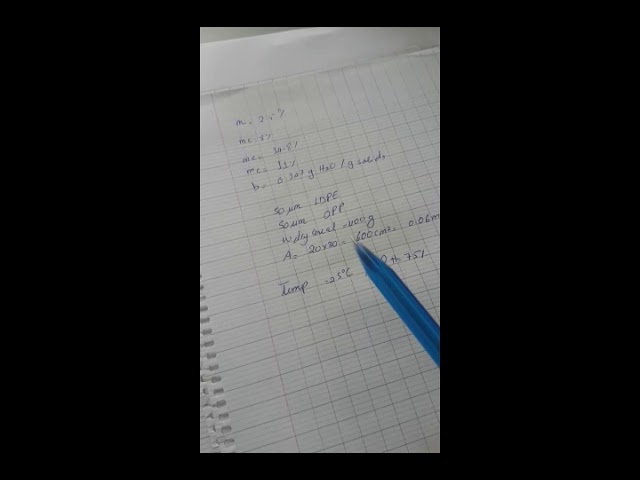 m = 2.5%
mc = 8%
me = 34.8%
mc = 11%
b = 0.207 g H2O / g solids
50 µm LDPE
50 µm OPP
Wt dry cereal = 400 g
A = 20x30 = 600 cm² = 0.06m
Temp = 25°C 75%